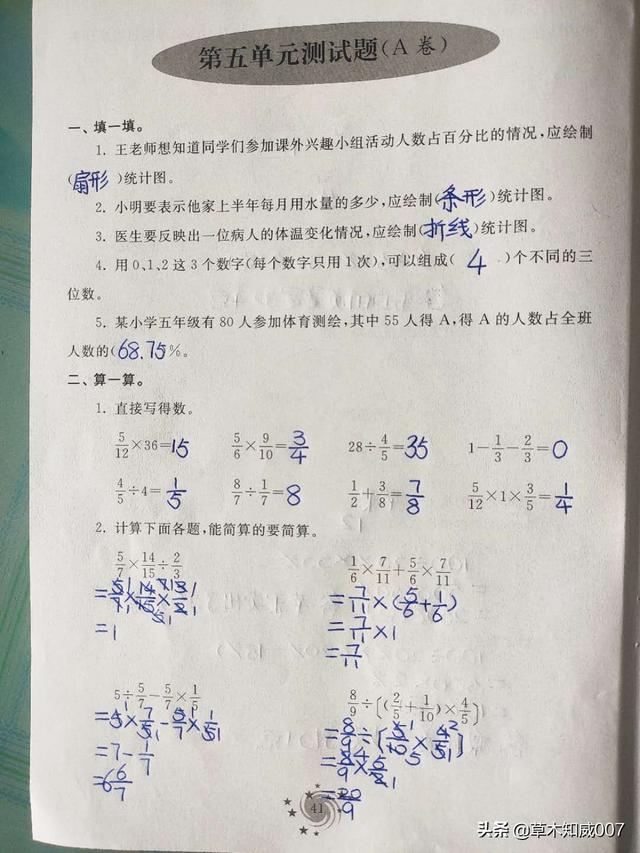 第五单元测试题(A卷)
一、填一填。
1. 王老师想知道同学们参加课外兴趣小组活动人数占百分比的情况,应绘制
(扇形)统计图。
2. 小明要表示他家上半年每月用水量的多少,应绘制(条形)统计图。
3. 医生要反映出一位病人的体温变化情况,应绘制(折线)统计图。
4. 用0、1、2这3个数字(每个数字只用1次),可以组成( 4 )个不同的三
位数。
5. 某小学五年级有80人参加体育测绘,其中55人得A,得A的人数占全班
人数的(68.75%。
二、算一算。
1. 直接写得数。
5/12×36=15 5/6×9/10=3/4 28÷4/5=35 1-1/3-2/3=0
4/5÷4=1/5 8/7÷1/7=8 1/2+3/8=7/8 5/12×1×3/5=1/4
2. 计算下面各题,能简算的要简算。
5/7×14/15÷2/3 1/6×7/11+5/6×7/11
=5/7×14/15×3/2 =7/11×(5/6+1/6)
=1 =7/11×1
=7/11
5÷5/7-5/7×1/5 8/9÷[(2/5+1/10)×4/5]
=5×7/5-5/7×1/5 =8/9÷[5/10×4/5]
=7-1/7 =8/9×5/2
=6 6/7 =20/9
41
头条 @草木知威007